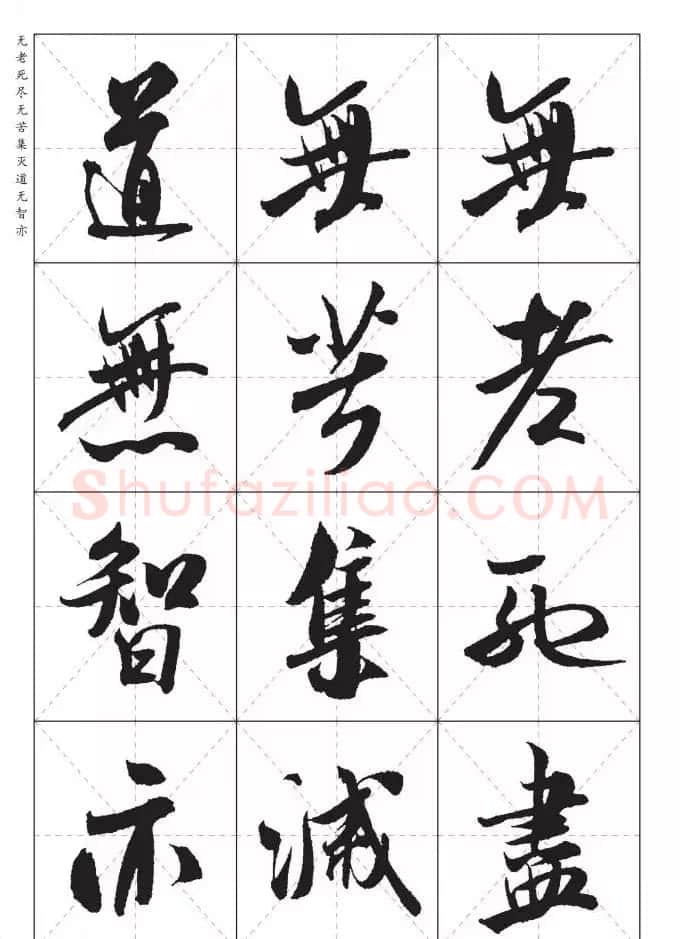 无老死尽无苦集灭道无智亦
無老死盡
無苦集滅
道無智亦
Shufaziliao.COM